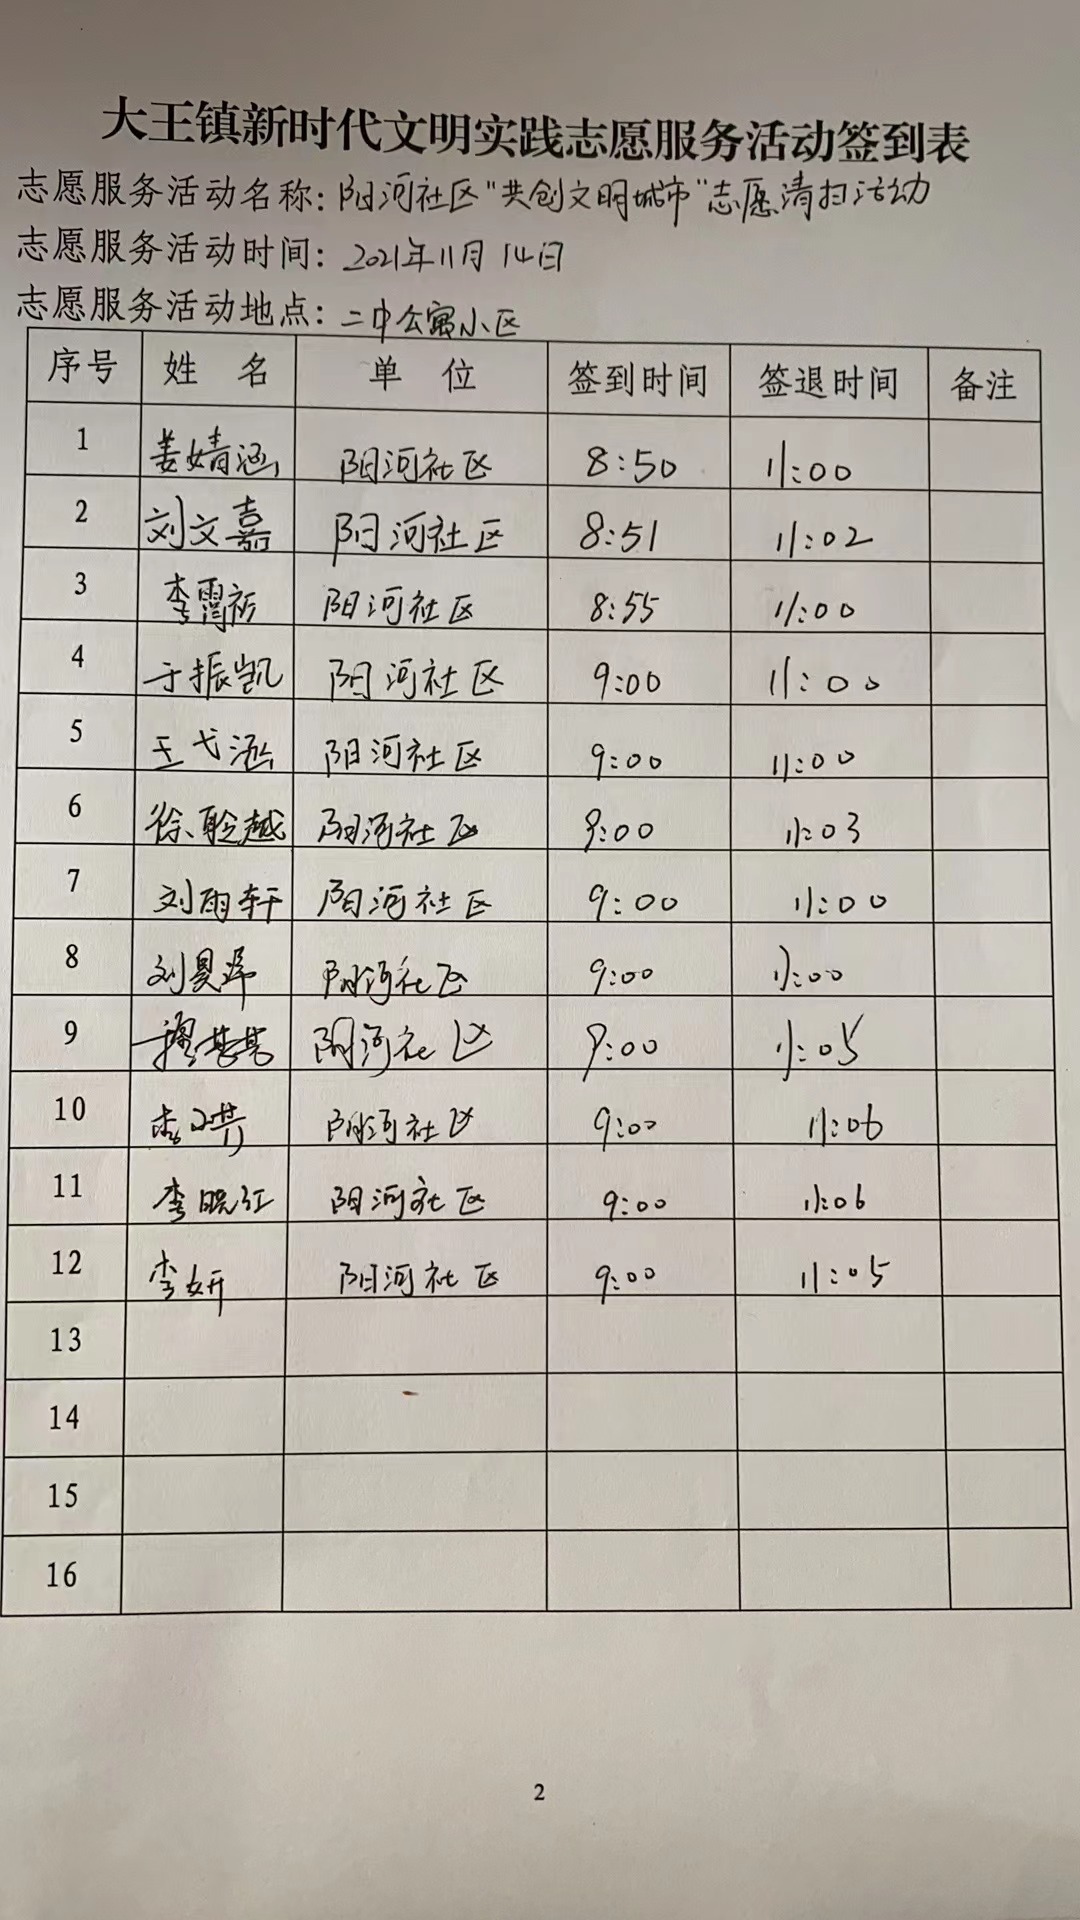 大王镇新时代文明实践志愿服务活动签到表
志愿服务活动名称: 阳河社区"共创文明城市"志愿清扫活动
志愿服务活动时间: 2021年11月14日
志愿服务活动地点: 二中公寓小区
序号 姓 名 单 位 签到时间 签退时间 备注
1 姜婧涵 阳河社区 8:50 11:00
2 刘文嘉 阳河社区 8:51 11:02
3 李霄 阳河社区 8:55 11:00
4 于振凯 阳河社区 9:00 11:00
5 王弋涵 阳河社区 9:00 11:00
6 徐聆越 阳河社区 9:00 11:03
7 刘雨轩 阳河社区 9:00 11:00
8 刘昊泽 阳河社区 9:00 11:00
9 阳河社区 9:00 11:05
10 李 阳河社区 9:00 11:06
11 李晓红 阳河社区 9:00 11:06
12 李妍 阳河社区 9:00 11:05
13
14
15
16
2